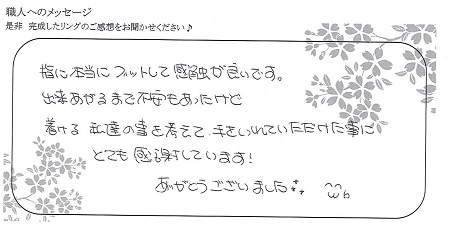 職人へのメッセージ
是非 完成したリングのご感想をお聞かせください♪
指に本当にフィットして感触が良いです。
出来あがるまで不安もあったけど
着ける 私達の事を考えて、手をいれていただけた事に
とても感謝しています!
ありがとうございました